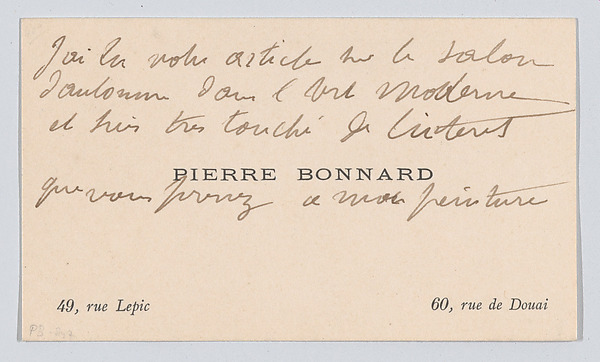 J'ai lu votre article sur le Salon
d'automne dans l'Art Moderne
et suis très touché de l'interet
PIERRE BONNARD
que vous prenez a ma peinture
49, rue Lepic
60, rue de Douai